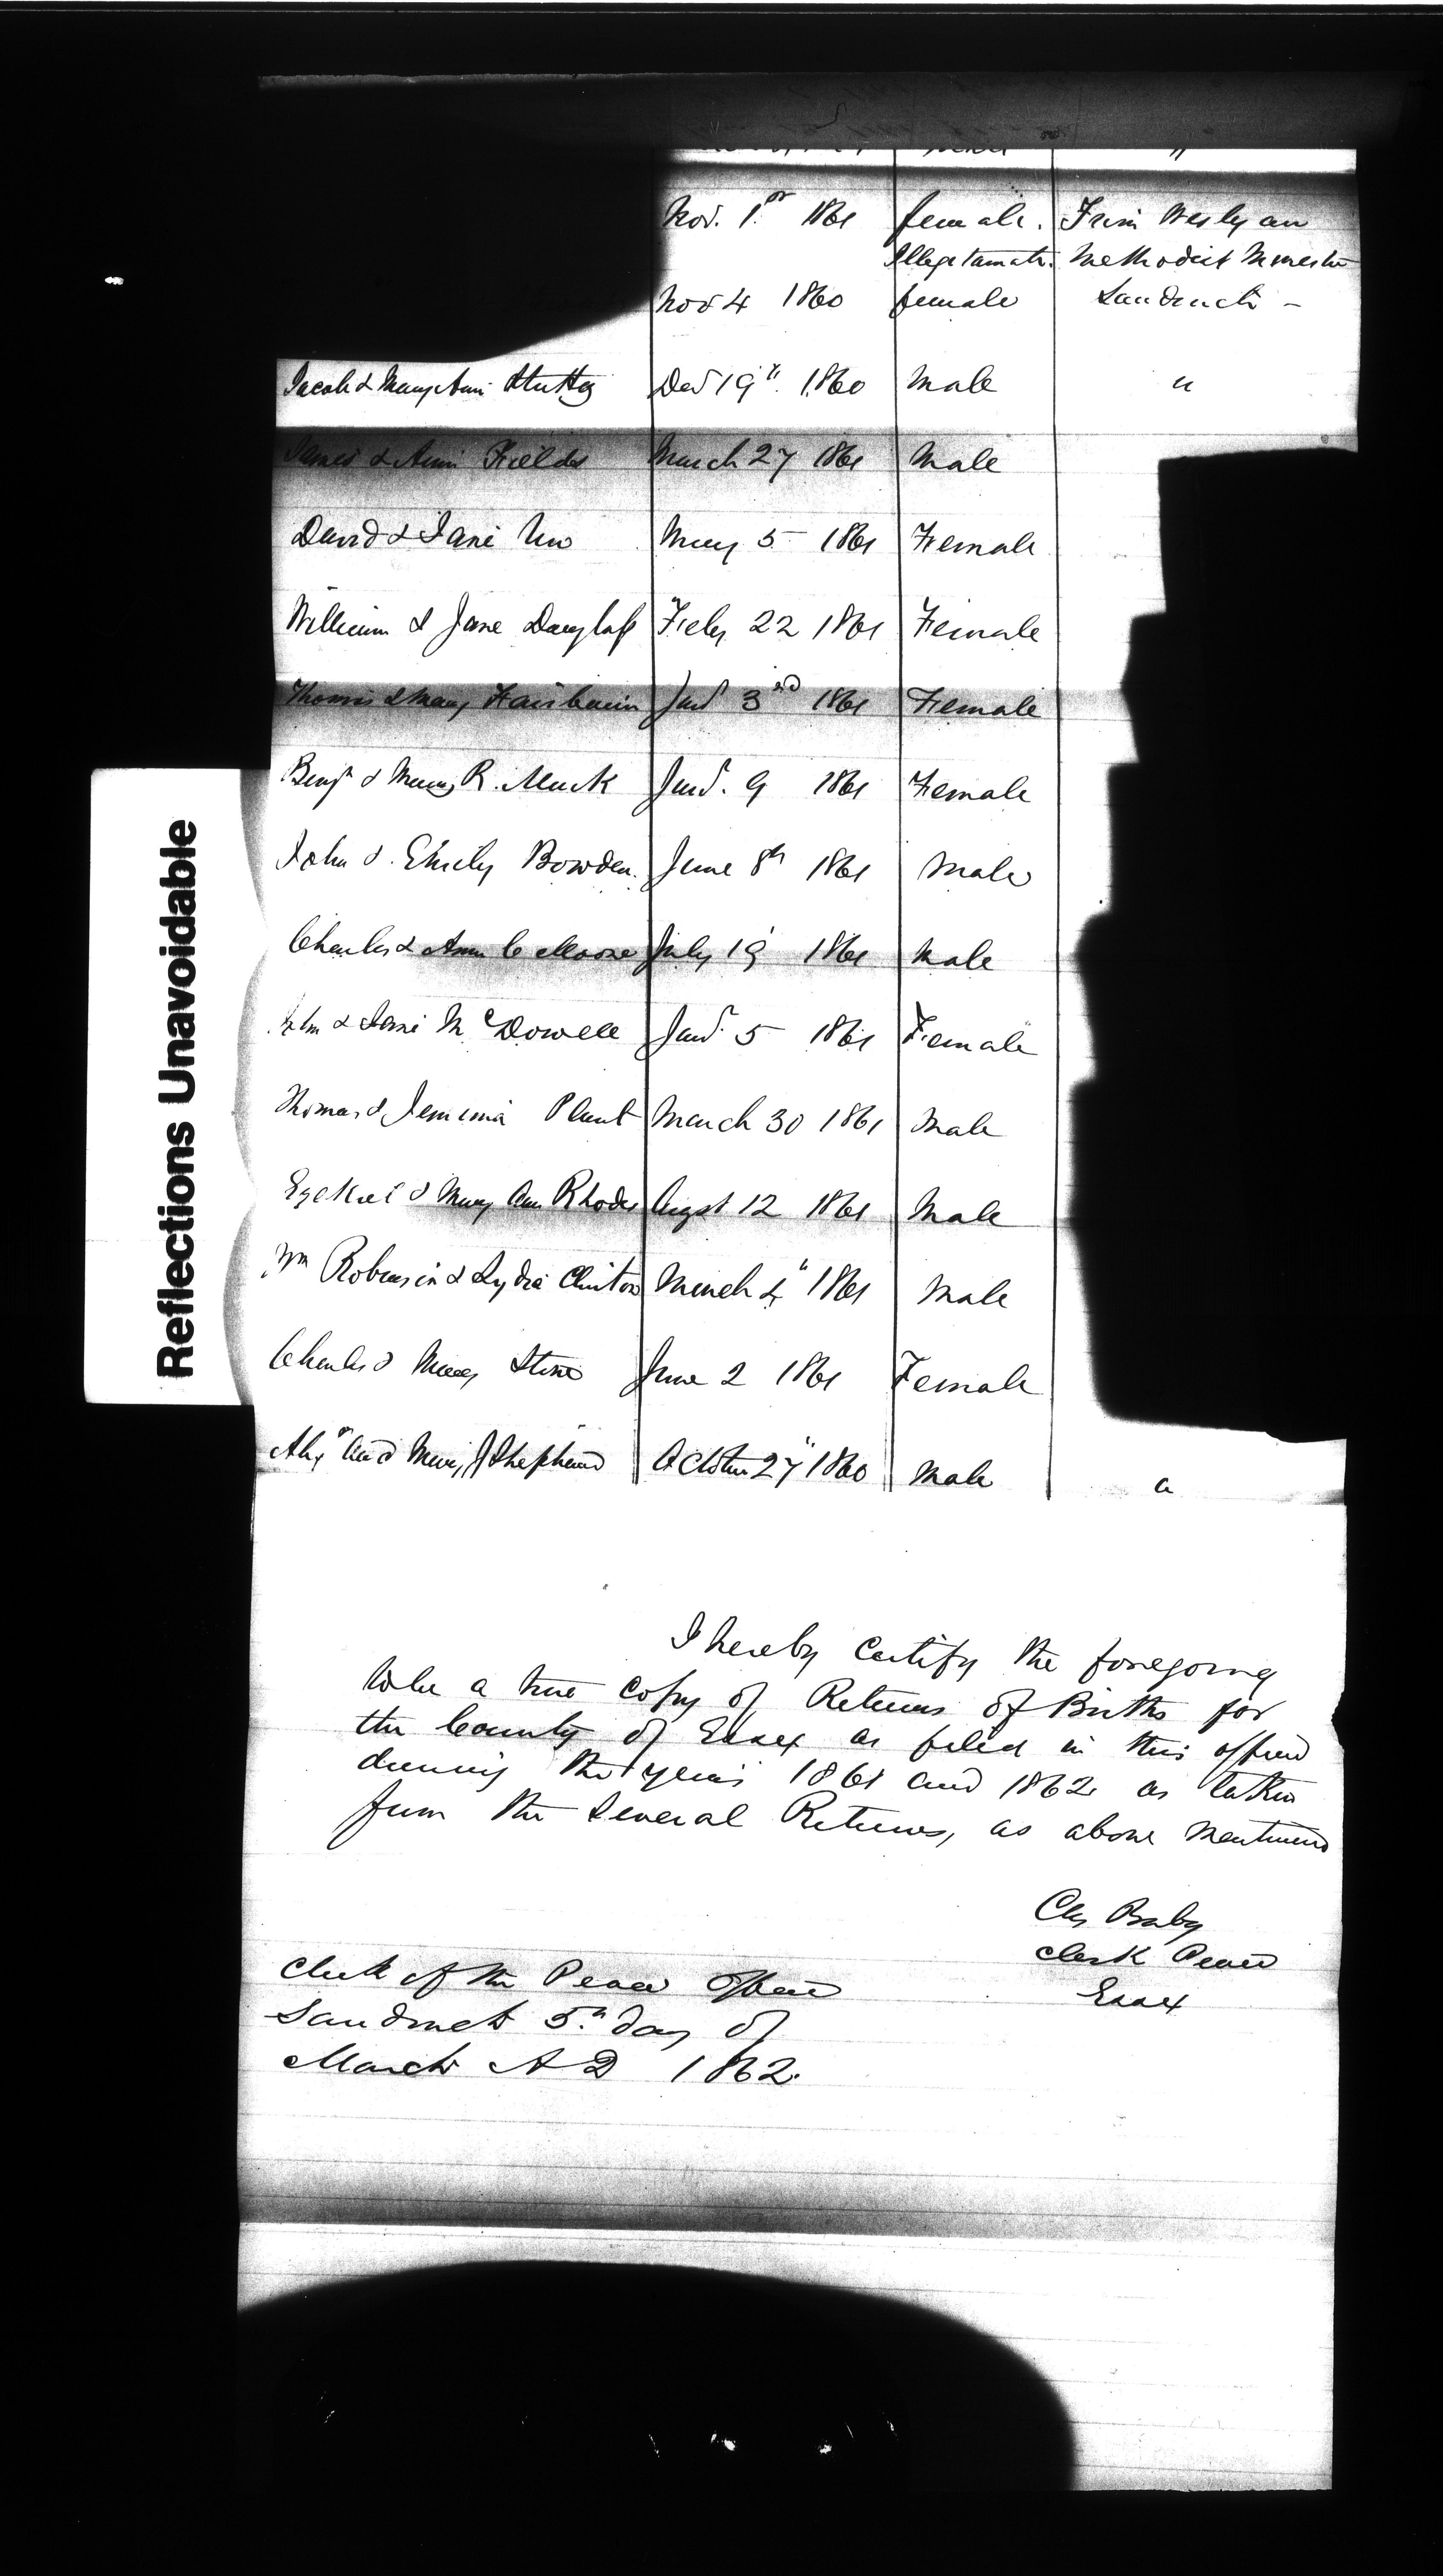 Nov. 1st 1861 female. From Wesleyan
Illegetamate. Methodist Minester
Nov 4 1860 female Sandwich -
Jacob & Mary Ann Dec 19th. 1860 Male "
James & Ann Fields March 27 1861 Male
David & Jane May 5 1861 Female
William & Jane Douglass Feby 22 1861 Female
Thomas & Mary Fairbairn Jany 3rd 1861 Female
Benjn & Mary R. Jany. 9 1861 Female
John & Emily Bowden. June 8th 1861 Male
Charles & Ann C Moore July 19 1861 Male
John & Jane McDowell Jany 5 1861 Female
Thomas & Jemima Plant March 30 1861 Male
Ezekiel & Mary Ann Rhodes Augst 12 1861 Male
Wm Robinson & Lydia Clinton March 4" 1861 Male
Charles & Mary Stone June 2 1861 Female
Alexr and Mary J Shephard October 27" 1860 Male "
Reflections Unavoidable
I hereby certify the foregoing
to be a true copy of Returns of Births for
the County of Essex as filed in this office
during the years 1861 and 1862 as taken
from the several Returns, as above mentioned
Chs Baby
Clerk Peace
Essex
Clerk of the Peace Office
Sandwich 5th day of
March A D 1862.